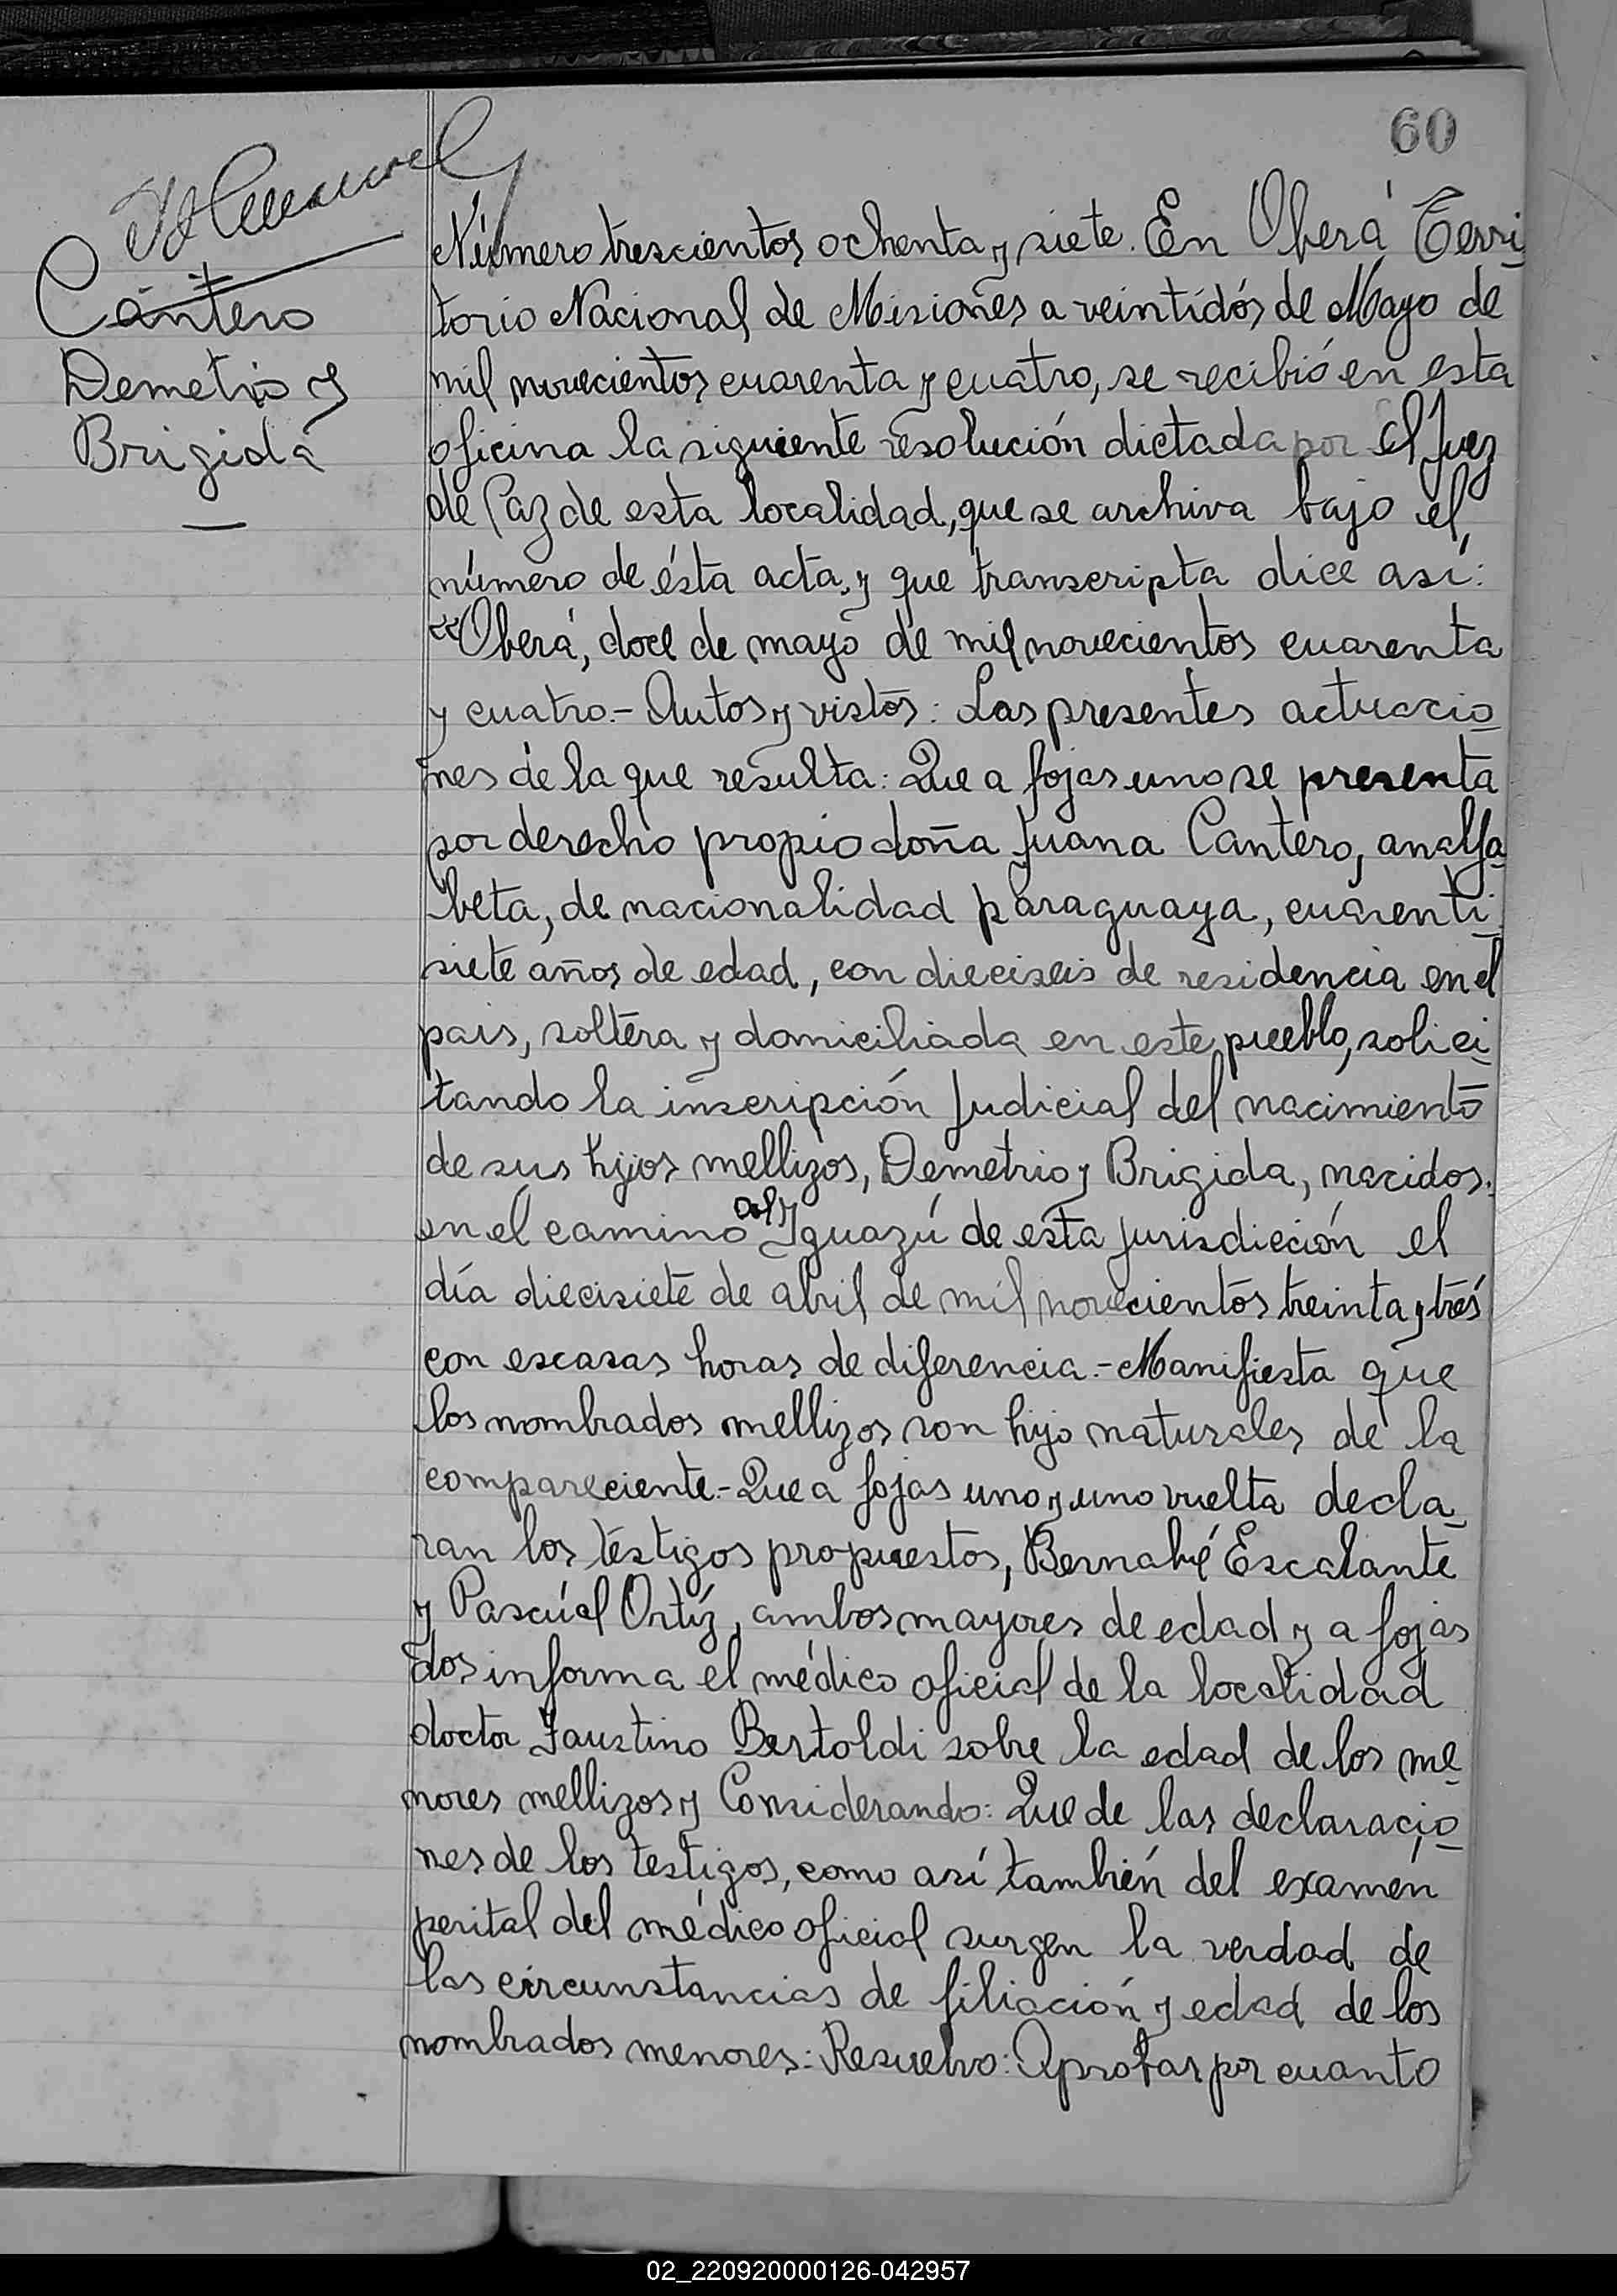 60
Cantero
Demetrio y
Brigida
Número trescientos ochenta y siete. En Oberá Terri
torio Nacional de Misiones a veintidós de Mayo de
mil novecientos cuarenta y cuatro, se recibió en esta
oficina la siguiente resolución dictada por el Juez
de Paz de esta localidad, que se archiva bajo el
número de ésta acta y que transcripta dice así:
"Oberá, doce de mayo de mil novecientos cuarenta
y cuatro.- Autos y vistos: Las presentes actuacio
nes de la que resulta: Que a fojas uno se presenta
por derecho propio doña Juana Cantero, analfa
beta, de nacionalidad paraguaya, cuarenti
siete años de edad, con dieciseis de residencia en el
pais, soltera y domiciliada en este pueblo, solici
tando la inscripción Judicial del nacimiento
de sus hijos mellizos, Demetrio y Brigida, nacidos
en el camino al Iguazú de esta jurisdicción el
día diecisiete de abril de mil novecientos treinta y trés
con escasas horas de diferencia.- Manifiesta que
los nombrados mellizos son hijo naturales de la
compareciente.- Que a fojas uno y uno vuelta decla
ran los testigos propuestos, Bernabé Escalante
y Pascúal Ortíz, ambos mayores de edad y a fojas
dos informa el médico oficial de la localidad
doctor Faustino Bertoldi sobre la edad de los me
nores mellizos y Considerando: Que de las declaracio
nes de los testigos, como así también del examén
perital del médico oficial surgen la verdad de
las circunstancias de filiación y edad de los
nombrados menores: Resuelvo: Aprobar por cuanto
02_220920000126-042957